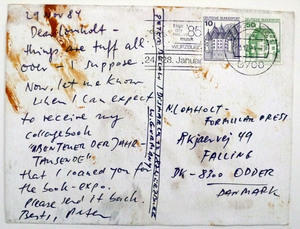 29 Nov 84
Dear Lomholt -
things are tuff all
over - I suppose
Now, let me know
when I can expect
to receive my
collagebook
"ABENTEUER DER JAHR-
TAUSENDE"
that I loaned you for
the book-expo.
Please send it back.
Best,
'85
WÜRZBURG
28. Januar
8700
10
DEUTSCHE BUNDESPOST
50
DEUTSCHE BUNDESPOST
N. LOMHOLT -
FORMULAR PRESS
Åkjærvej 49
FALLING
DK-8300 ODDER
DANMARK